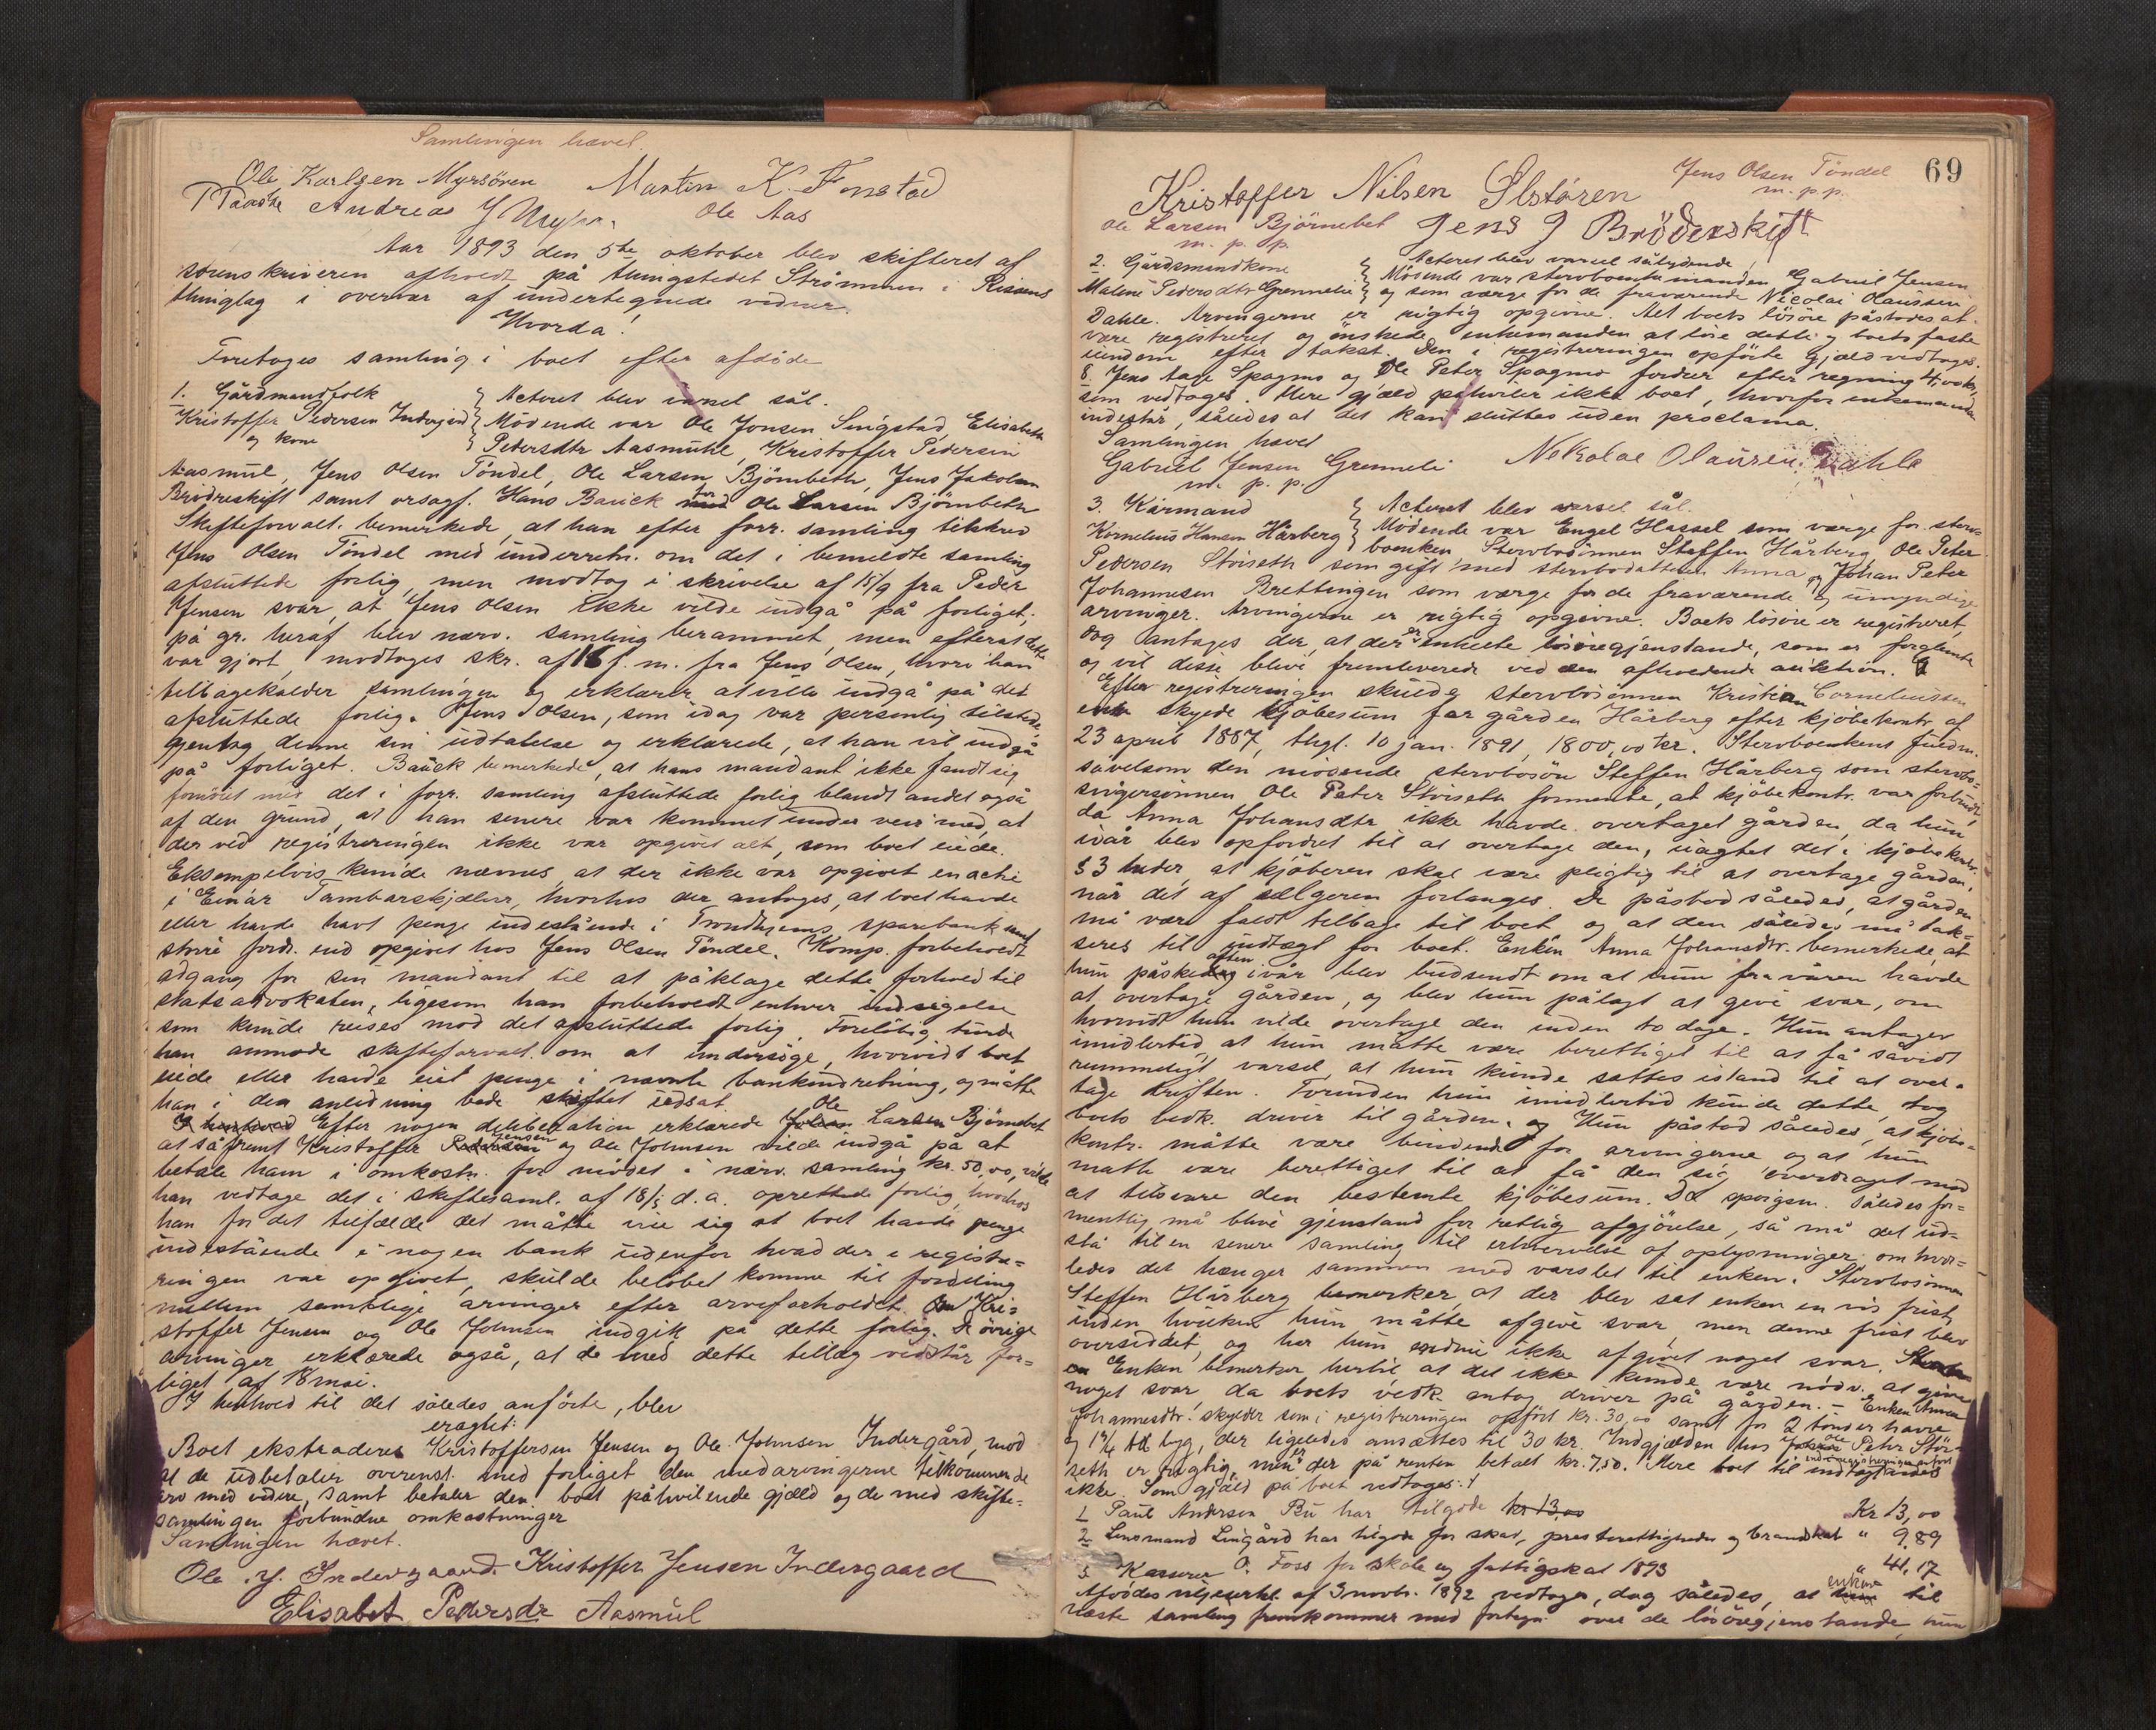 Samlingen hævet.
Ole Karlsen Myrsören Martin K. Fonstad
Andreas J Ole Aas
Aar 1893 den 5te oktober blev skifteret af
sorenskriveren afholdt på thingstedet Strömmen i Rissens
thinglag i overvær af undertegnede vidner.
Hvorda!
Foretoges samling i boet efter afdöde
1. Gårdmandfolk
Kristoffer Pedersen Indergård
og kone
Acteret blev varsel sål.
Mödende var Ole Jonsen Singstad, Elisabeth
Pedersdtr Aasmuhl, Kristoffer Pedersen
Aasmul, Jens Olsen Töndel, Ole Larsen Björnbeth, Jens Jakobsen
Brödreskift samt orsagf. Hans Bauck for Ole Larsen Björnbeth
Skifteforvalt. bemerkede, at han efter forr. samling tilskrev
Jens Olsen Töndel med underretn. om det i bemeldte samling
afsluttede forlig, men modtog i skrivelse af 15/9 fra Peder
Jensen svar, at Jens Olsen ikke vilde indgå på forliget;
på gr. heraf blev nærv. samling berammet, men efterat dette
var gjort, modtoges skr. af 16 f. m. fra Jens Olsen, hvori han
tilbagekalder samlingen og erklærer at ville indgå på det
afsluttede forlig. Jens Olsen, som idag var personlig tilstede,
gjentog denne sin udtalelse og erklærede, at han vil indgå
på forliget. Bauck bemerkede, at hans mandant ikke fandt sig
fornöiet med det i forr. samling afsluttede forlig blandt andet også
af den grund, at han senere var kommet under veir med, at
der ved registreringen ikke var opgivet alt, som boet eiede.
Eksempelvis kunde nævnes, at der ikke var opgivet en actie
i Einar Tambarskjælver, hvorhos der antoges, at boet havde
eller havde havt penge indestående i Trondhjems sparebank samt
större fordr. end opgivet hos Jens Olsen Töndel. Komp. forbeholdt
adgang for sin mandant til at påklage dette forhold til
statsadvokaten, ligesom han forbeholdt enhver indsigelse
som kunde reises mod det afsluttede forlig. Forelöbig turde
han anmode skifteforvalt. om at undersöge, hvorvidt boet
eiede eller havde eiet penge i nævnte bankindretning, og måtte
han i den anledning bede skiftet udsat.
Efter nogen deliberation erklærede Ole Larsen Björnebet
at såfremt Kristoffer Jensen og Ole Johnsen vilde indgå på at
betale ham i omkostn. for mödet i nærv. samling kr. 50,00, vilde
han vedtage det i skiftesaml. af 18/5 d. a. oprettede forlig, hvorhos
han for det tilfælde det måtte vise sig at boet havde penge
indestående i nogen bank udenfor hvad der i registre=
ringen var opgivet, skulde belöbet komme til fordeling
mellem samtlige arvinger efter arveforholdet. Kri=
stoffer Jensen og Ole Johnsen indgik på dette forlig. De övrige
arvinger erklærede også, at de med dette tillæg vedstår for=
liget af 18 mai.
I henhold til det således anförte, blev
eragtet:
Boet ekstraderes Kristoffersen Jensen og Ole Johnsen Indergård, mod
at de udbetaler overenst. med forliget den medarvingerne tilkommende
arv med videre, samt betaler den boet påhvilende gjæld og de med skifte=
samlingen forbundne omkostninger
Samlingen hævet.
Ole J. Indergaard. Kristoffer Jensen Indergaard
Elisabet Pedersdr Aasmul
69
Jens Olsen Töndel
m. p. p.
Kristoffer Nilsen
Ole Larsen Björnebet
m. p. p.
Jens J Bröderskift
2. Gårdmandkone
Malene Pedersdtr Grenneli
Acteret blev varsel sålydende
Mödende var stervboenkemanden Gabriel Jensen
og som værge for de fraværende Nicolai Olaussen
Dahle. Arvingerne er rigtig opgivne. Alt boets lösöre påstodes at
være registreret og önskede enkemanden at löse dette og boets faste
eiendom efter takst. Den i registreringen opförte gjæld vedtoges.
8. Jens Aage Spagmo og Ole Peter Spagmo fordrer efter regning 4,00 kr,
som vedtoges. Mere gjæld påhviler ikke boet, hvorfor enkemanden
indestår, således at det kan sluttes uden proclama.
Samlingen hævet
Gabriel Jensen Grenneli
m. p. p.
Nekolae Olausen Dahle
3. Kårmand
Kornelius Hansen Hårberg
Acteret blev varsel sål.
Mödende var Engel Hassel som værge for sterv=
boenken, Stervbosönnen Steffen Hårberg, Ole Peter
Pedersen Störseth som gift med stervbodatteren Anna og Johan Peter
Johannesen Brettingen som værge for de fraværende og umyndige
arvinger. Arvingerne er rigtig opgivne. Boets lösöre er registreret,
dog antages der, at der er enkelte lösöregjenstande, som er forglemte
og vil disse blive fremleverede ved den afholdende auktion.
Efter registreringen skulde stervbosönnen Kristian Corneliussen
skyede kjöbesum for gården Hårberg efter kjöbekontr. af
23 april 1887, thgl. 10 jan. 1891, 1800,00 kr. Stervboenkens fuldm.
såvelsom den mödende stervbosön Steffen Hårberg som stervbo=
svigersönnen Ole Peter Störseth formente, at kjöbekontr. var forbrudt,
da Anna Johansdtr ikke havde overtaget gården, da hun
ivår blev opfordret til at overtage den, uagtet det i kjöbekontr.
§ 3 heder, at kjöberen skal være pligtig til at overtage gården,
når det af sælgeren forlanges. De påstod således, at gården
må være faldt tilbage til boet og at den således må tak=
seres til indtægt for boet. Enken Anna Johansdtr. bemerkede, at
hun påskeaften ivår blev budsendt om at hun fra våren havde
at overtage gården, og blev hun pålagt at give svar, om
hvorvidt hun vilde overtage den inden to dage. Hun antager
imidlertid, at hun måtte være berettiget til at få såvidt
rummeligt varsel, at hun kunde sættes istand til at over=
tage driften. Forinden hun imidlertid kunde dette, tog
boets vedk. driver til gården. Hun påstod således, at kjöbe=
kontr. måtte være bindende for arvingerne og at hun
måtte være berettiget til at få den sig overdraget mod
at tilsvare den bestemte kjöbesum. Da spörgsm. således for=
mentlig må blive gjenstand for retlig afgjörelse, så må det ud=
stå til en senere samling til erhvervelse af oplysninger om hvor=
ledes det hænger sammen med varslet til enken. Stervbosönnen
Steffen Hårberg bemerker, at der blev sat enken en vis frist,
inden hvilken hun måtte afgive svar, men denne frist blev
oversiddet, og har hun endnu ikke afgivet noget svar.
Enken bemerker hertil at det ikke kunde være nödv. at give
noget svar, da boets vedk. antog driver på gården. – Enken Anna
Johannesdtr. skylder som i registreringen opfört kr. 30,00 samt for 2 tönder havre
og 1¼ td byg, der ligeledes ansættes til 30 kr. Indgjælden hos Ole Peter Stör=
seth er rigtig, men der er på renten betalt kr. 7,50. Mere boet til indtægt
ikke. Som gjæld på boet vedtoges:
1 Paul Andersen Bü har tilgode Kr 13,00
2. Lensmand Lingård har tilgode for skat, presterettigheder og brandskat " 9,89
3. Kasserer O. Foss for skole og fattigskat 1893 " 41,17
Afdödes af 3 novb. 1892 vedtoges, dog således, at enken til
næste samling fremkommer med fortegn. over de lösöregjenstande, hun